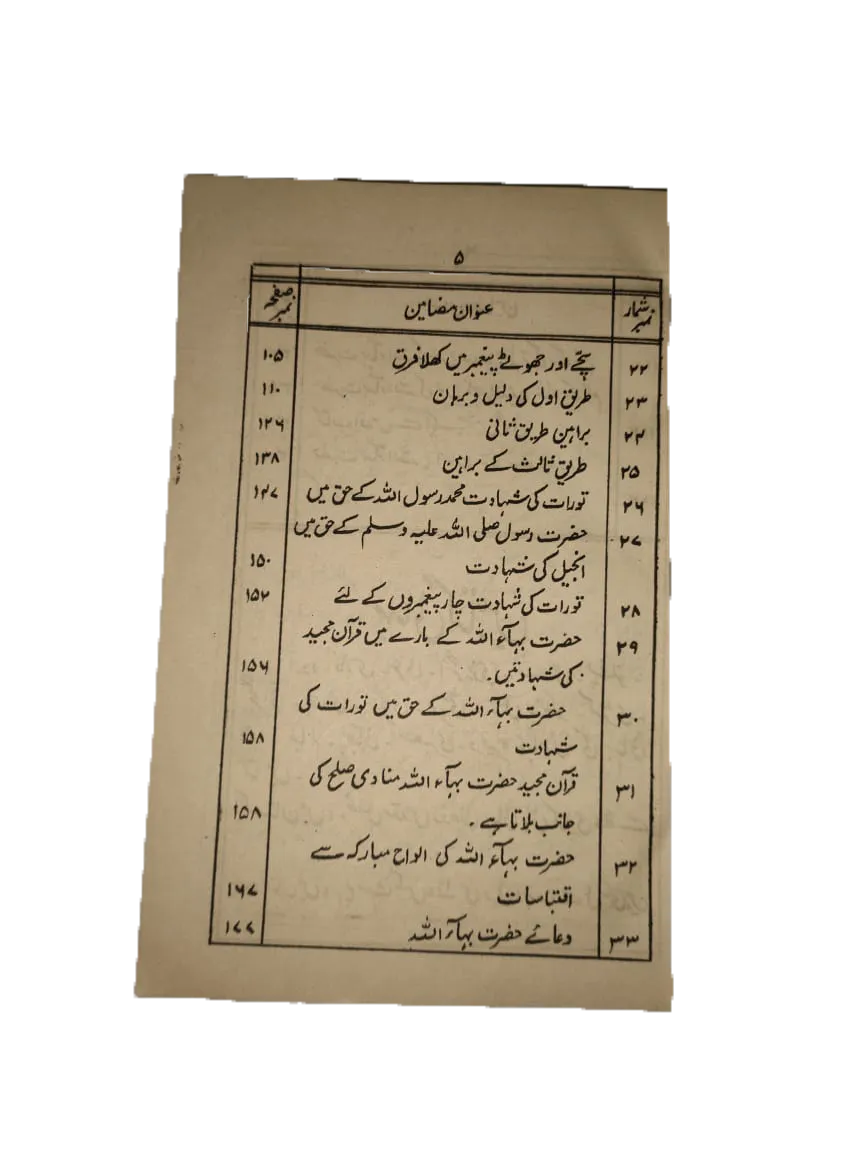 ۵
شمار نمبر عنوان مضامین صفحہ نمبر
۲۲ سچے اور جھوٹے پیغمبر میں کھلا فرق ۱۰۵
۲۳ طریق اول کی دلیل و برہان ۱۱۰
۲۴ براہین طریق ثانی ۱۲۶
۲۵ طریق ثالث کے براہین ۱۳۸
۲۶ تورات کی شہادت محمد رسول اللہ کے حق میں ۱۴۷
۲۷ حضرت رسول صلی اللہ علیہ وسلم کے حق میں
انجیل کی شہادت ۱۵۰
۲۸ تورات کی شہادت چار پیغمبروں کے لئے ۱۵۲
۲۹ حضرت بہآء اللہ کے بارے میں قرآن مجید
کی شہادتیں۔ ۱۵۶
۳۰ حضرت بہآء اللہ کے حق میں تورات کی
شہادت ۱۵۸
۳۱ قرآن مجید حضرت بہآء اللہ منادی صلح کی
جانب بلاتا ہے۔ ۱۵۸
۳۲ حضرت بہآء اللہ کی الواح مبارکہ سے
اقتباسات ۱۶۷
۳۳ دعائے حضرت بہآء اللہ ۱۷۷